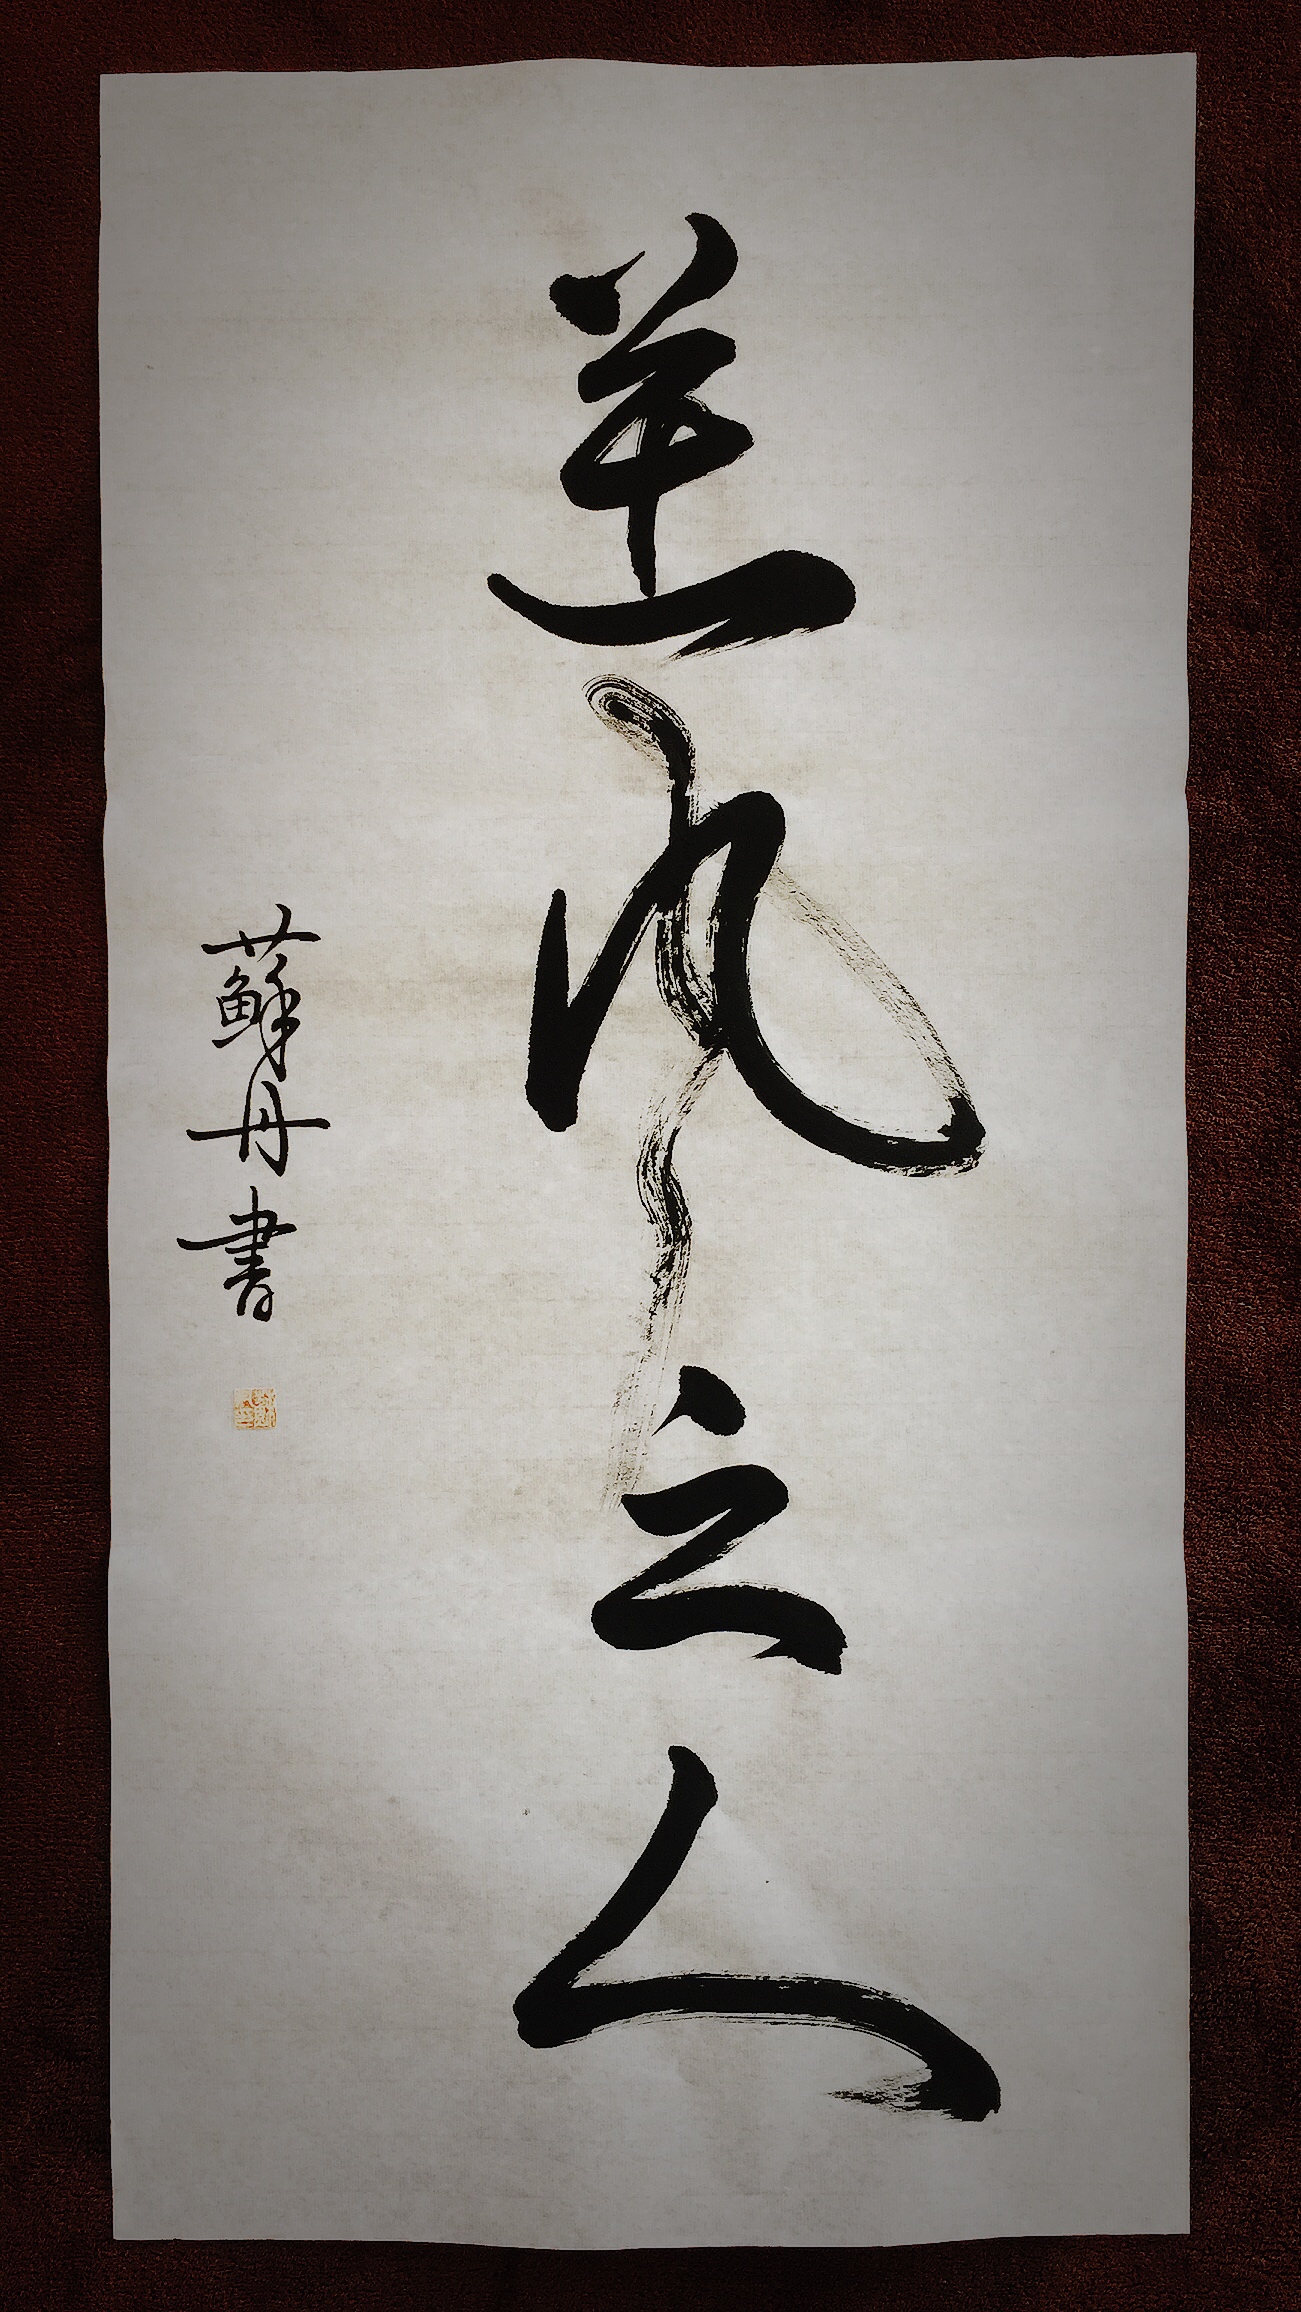 逆風之人
蘇丹書